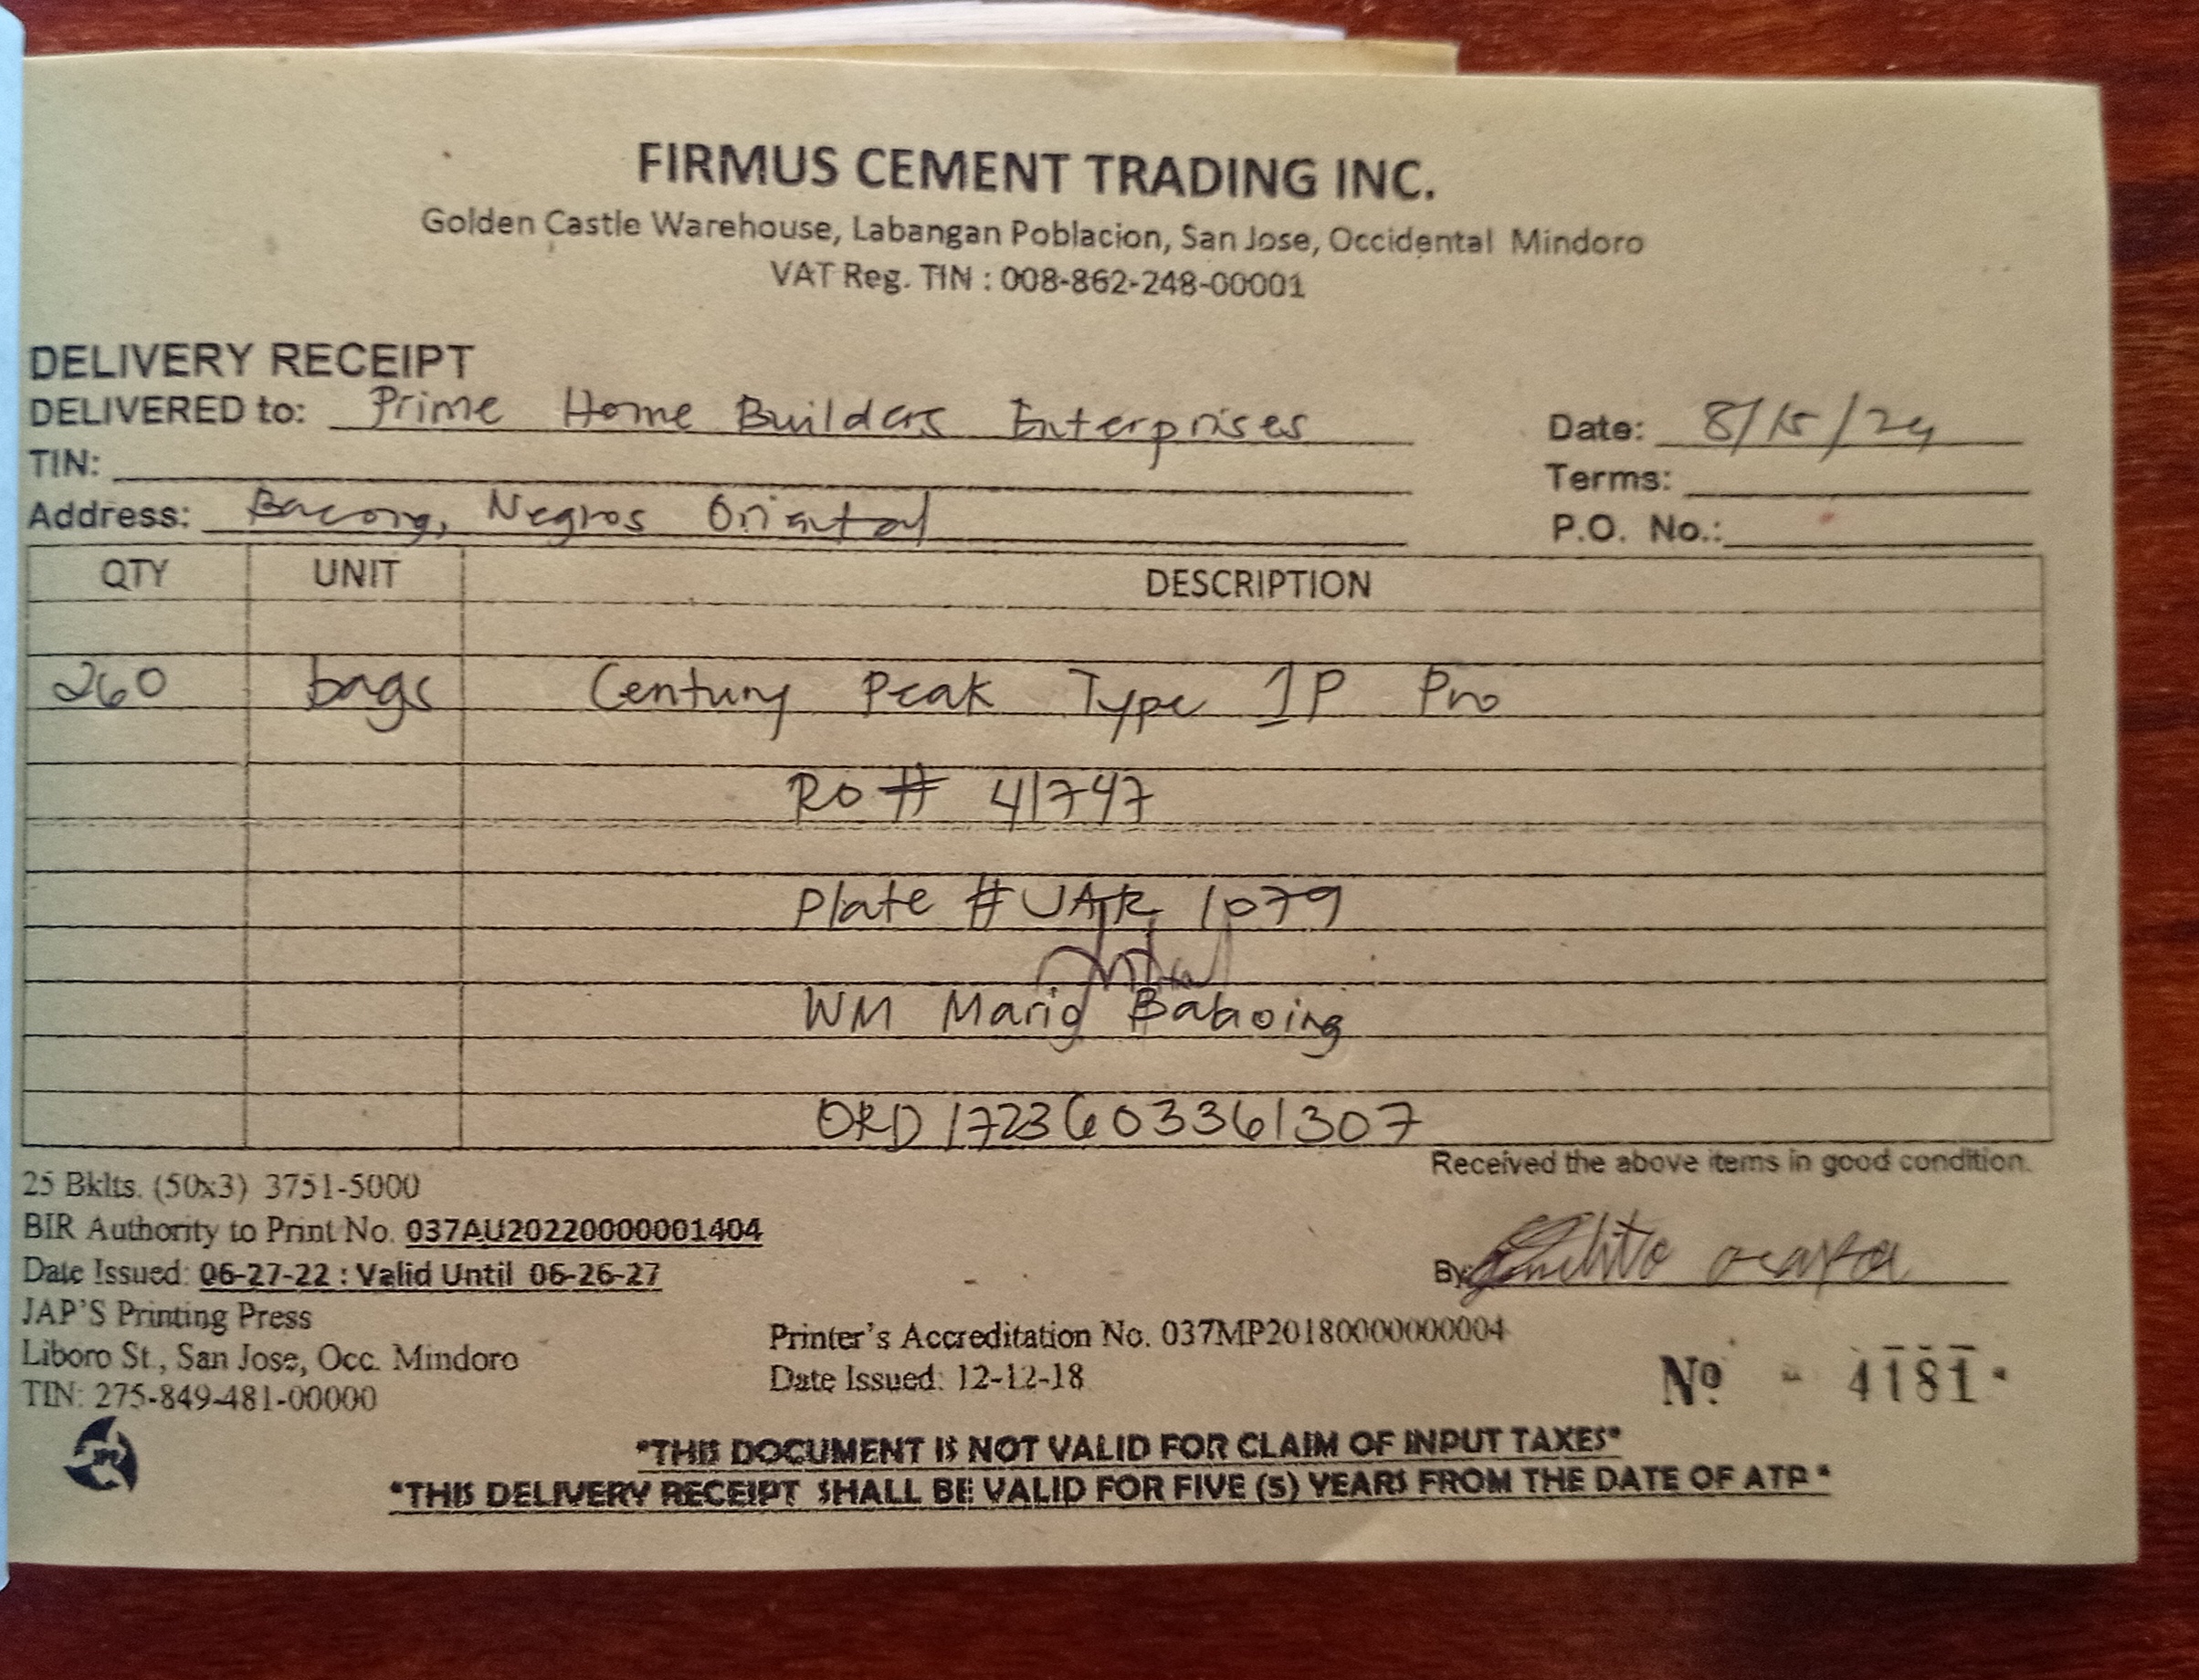 FIRMUS CEMENT TRADING INC.
Golden Castle Warehouse, Labangan Poblacion, San Jose, Occidental Mindoro
VAT Reg. TIN : 008-862-248-00001
DELIVERY RECEIPT
DELIVERED to: Prime Home Builders Enterprises Date: 8/15/24
TIN: Terms:
Address: Bacong, Negros Oriental P.O. No.:
QTY UNIT DESCRIPTION
260 bags Century Peak Type 1P Pro
RO # 41747
Plate # UAR 1079
WM Mario
ORD 1723603361307
Received the above items in good condition.
25 Bklts. (50x3) 3751-5000
BIR Authority to Print No. 037AU20220000001404
Date Issued: 06-27-22 : Valid Until 06-26-27
By:
JAP'S Printing Press
Liboro St., San Jose, Occ. Mindoro
TIN: 275-849-481-00000
Printer's Accreditation No. 037MP20180000000004
Date Issued: 12-12-18
Nº - 4181
"THIS DOCUMENT IS NOT VALID FOR CLAIM OF INPUT TAXES"
"THIS DELIVERY RECEIPT SHALL BE VALID FOR FIVE (5) YEARS FROM THE DATE OF ATP"